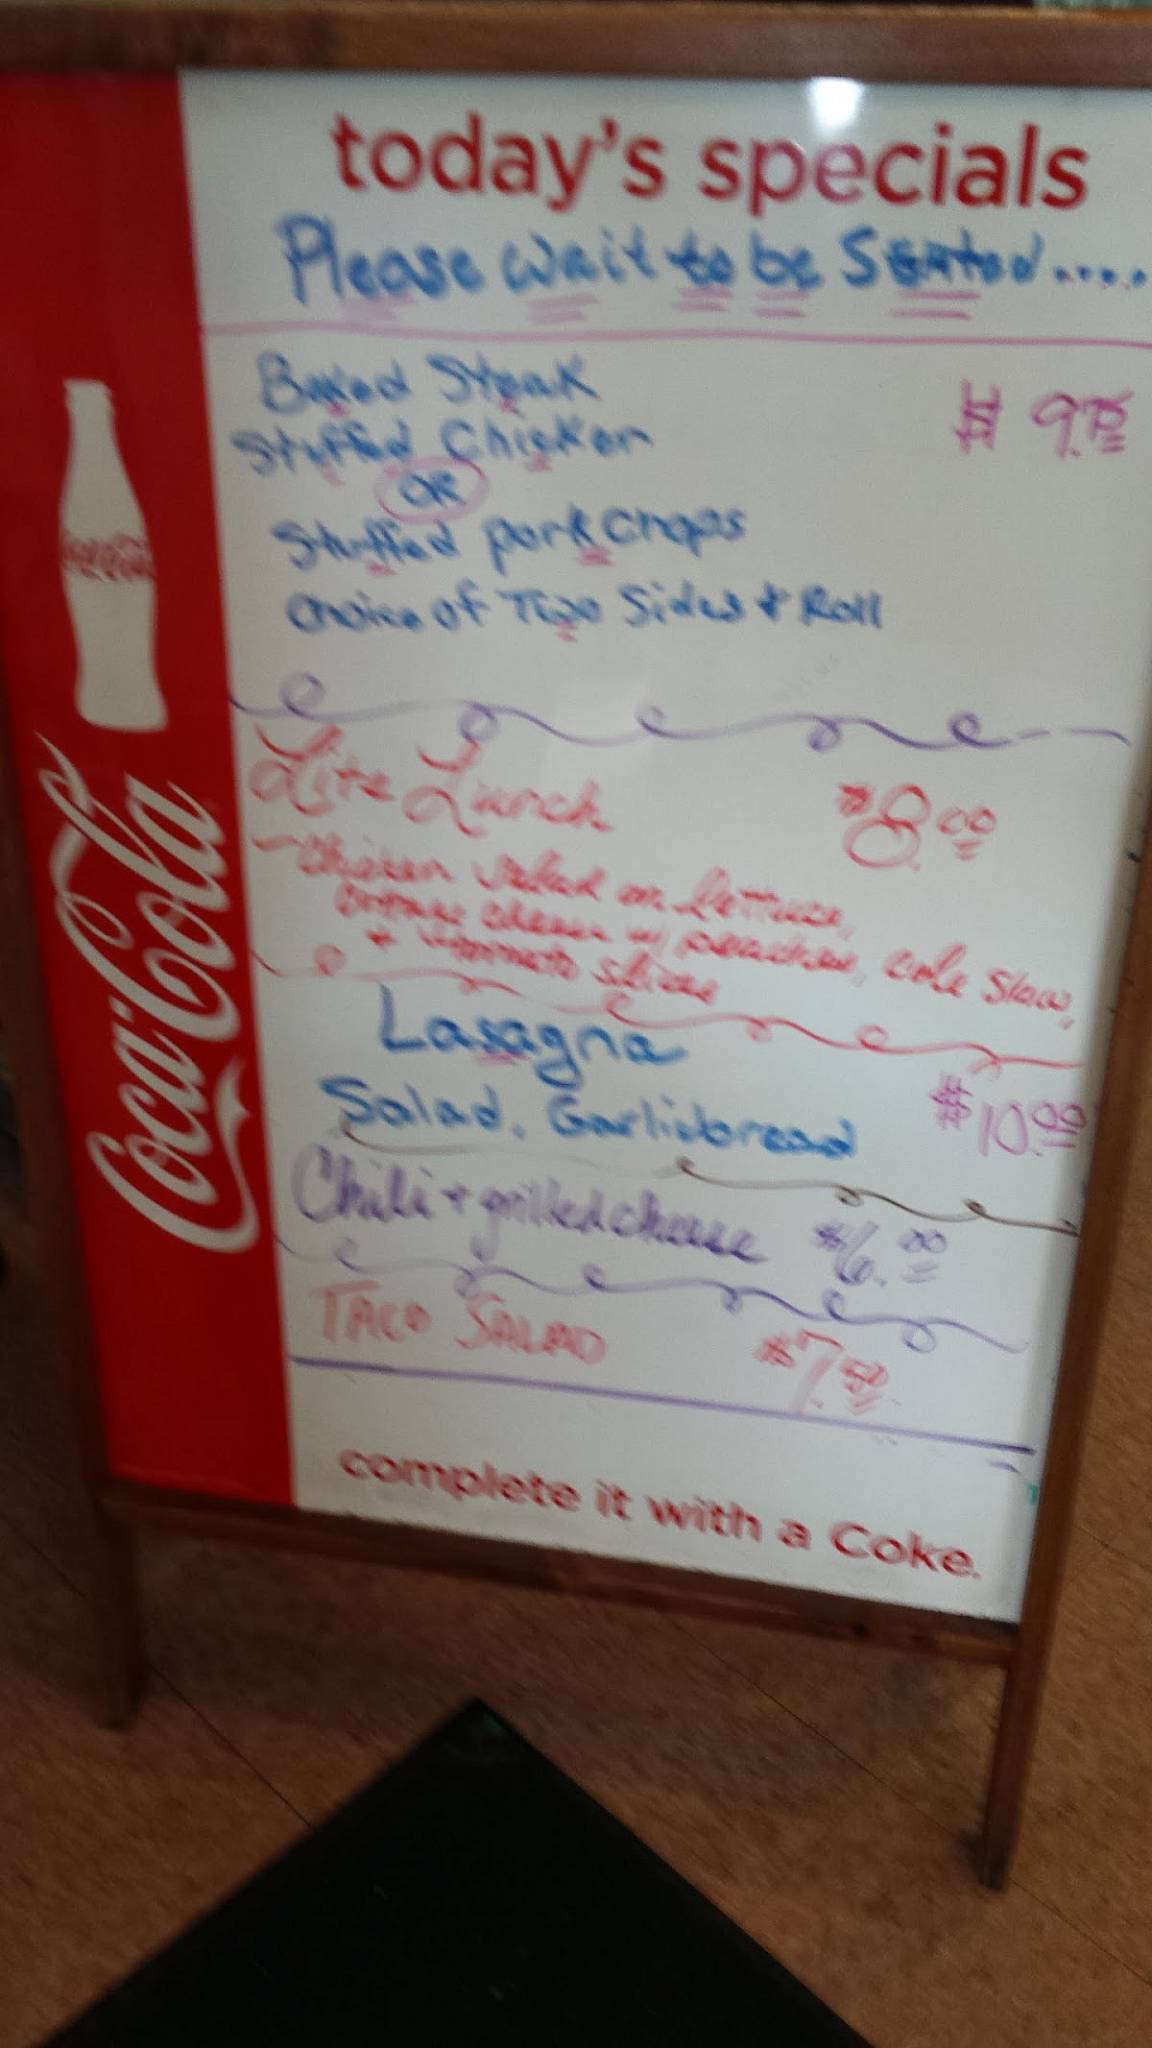 today's specials
Please wait to be Seated.....
Baked Steak $9.75
Stuffed Chicken
OR
Stuffed pork chops
Choice of Two Sides + Roll
Coca-Cola
Lite Lunch $8.00
Chicken Salad on lettuce,
Cottage cheese w/ peaches, cole slaw,
+ tomato slices
Lasagna
Salad, Garlicbread $10.00
Chili + grilled cheese $6.00
TACO SALAD $7.50
complete it with a Coke.
Coca-Cola